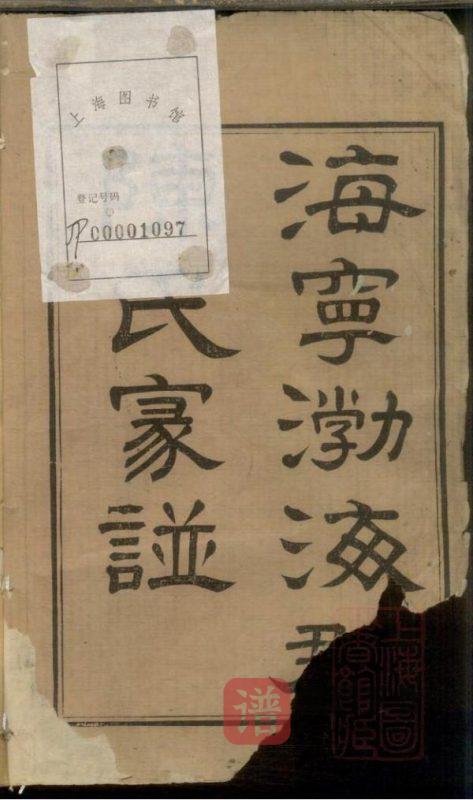 海寧渤海
氏家諩
上海图书馆
登记号码
00001097
上海圖
書館藏
谱